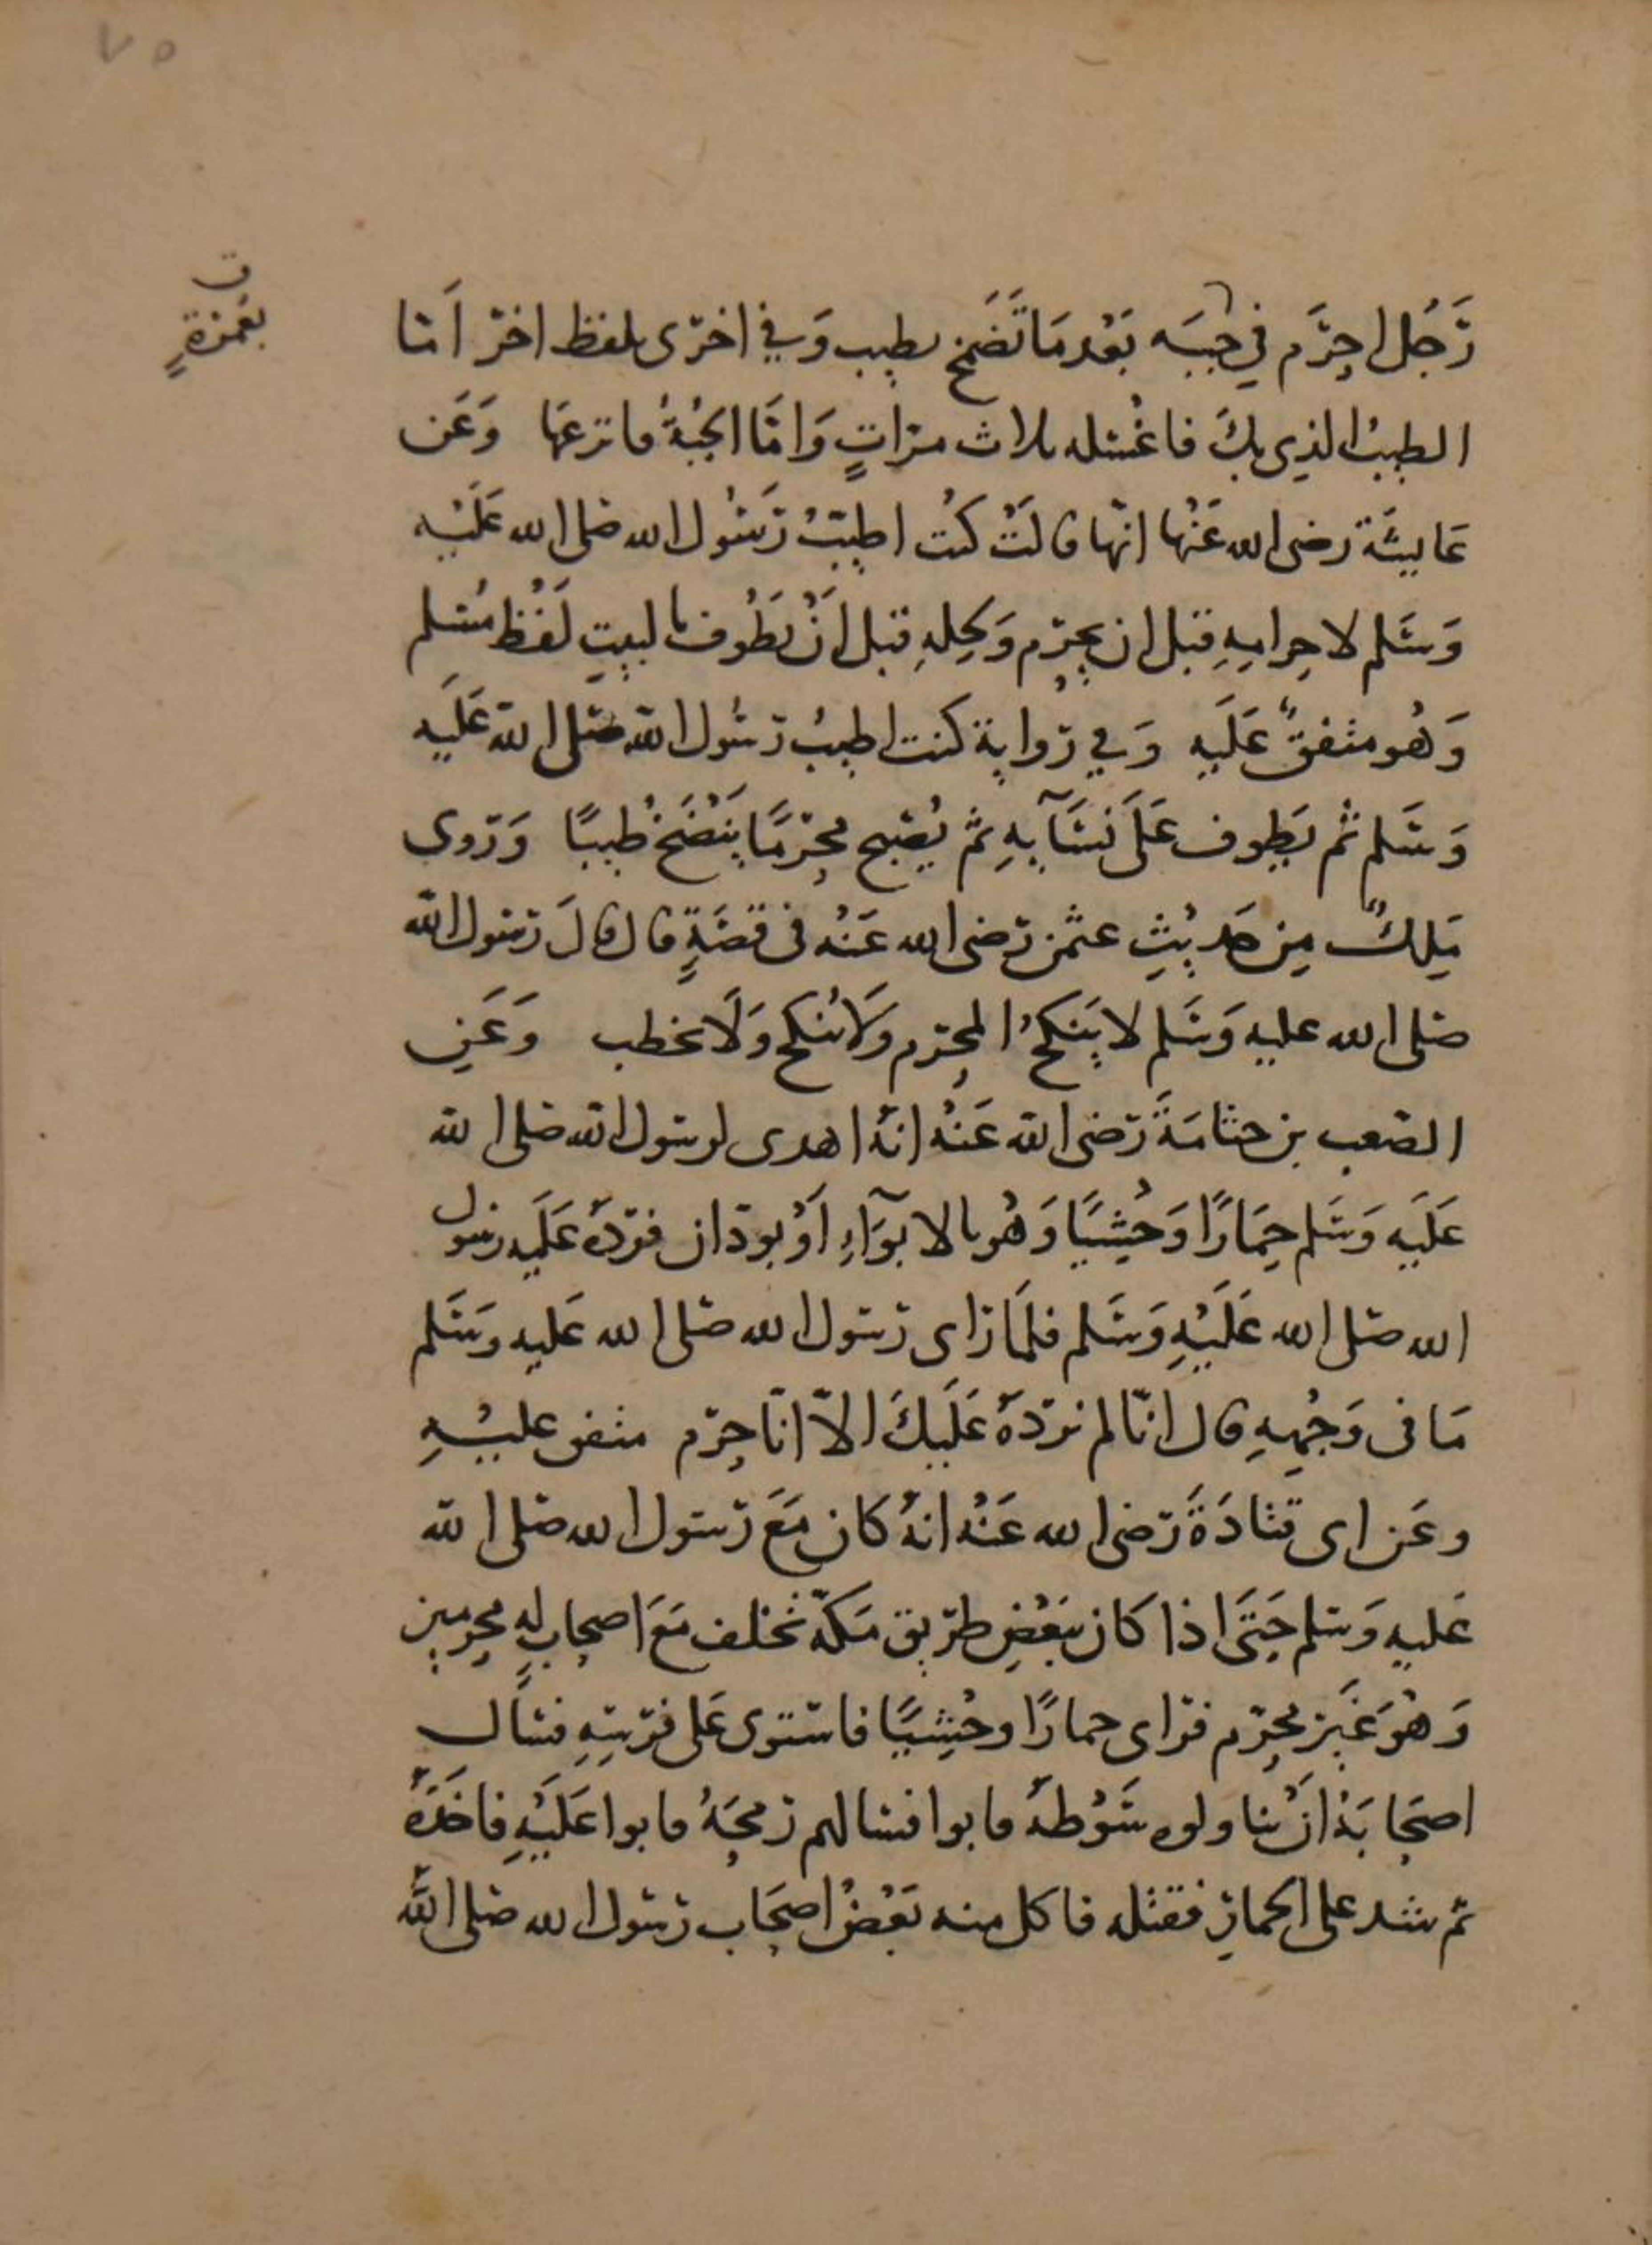 ٧٥
بعمرة
رَجُل احرَم في جبته بَعْد مَا تَضَمَّخ بطيب وَفي اخرى بلفظ اخر اَمّا
الطيبُ الذي بكَ فاغْسله ثلاث مراتٍ وَامّا الجُبةُ فانزعهَا وَعَن
عَايشَة رضى الله عَنْها انّها قالَتْ كنْت اطيّبُ رَسُول الله صلى الله عَلَيْه
وَسَلم لاحرامِهِ قبل ان يحرم وَلحِلهِ قبل اَنْ يَطُوف بالبيتِ لَفْظ مُسْلم
وَهُو متفقٌ عَلَيهِ وَفي روَاية كنت اطيبُ رسُول اللّه صَلى اللّه عَلَيه
وَسَلم ثُم يَطوف عَلَى نسَآيهِ ثم يُصبح محرمًا يَنْضَخُ طيبًا وَرَوى
مَلِكٌ مِن حَديثِ عثمن رَضى الله عَنْه فى قصَةٍ قال قالَ رَسول اللّه
صَلى الله عليه وَسَلم لا يَنكحُ المحرم وَلَا يُنكح وَلَا يخطب وَعَنِ
الصَعب بن جثامَةَ رَضى اللّه عَنْهُ انهُ اهدى لرسول اللّه صَلى اللّه
عَلَيه وَسَلم حِمَارًا وَحْشِيًا وَهُو بالابوَآءِ اَوْ بودّان فردّهُ عَلَيه رسول
الله صَلى الله عَلَيْهِ وَسَلم فلمَا رَاى رَسَول الله صَلى الله عَليه وَسَلم
مَا فى وَجْههِ قال انّا لم نردّهُ عَلَيكَ الاّ انّا حرم متفق عليْهِ
وعَن ابى قتادَةَ رَضى الله عَنْه انهُ كان مَعَ رَسول الله صَلى اللّه
عَليه وَسلم حَتَى اذا كان بِبَعْضِ طريق مَكّة تخلف مَعَ اصحابٍ لهِ محرمين
وَهُوَ غَيرُ محرم فراى حمارًا وحْشِيًا فاستوى عَلى فرَسِهِ فسَال
اصحَابَهُ اَنْ يناولوه سَوْطهُ فابوا فسالهم رمحَهُ فابوا عَلَيْهِ فاخَذَهُ
ثم شد على الحمارِ فقتله فاكل منه بَعْضُ اصحَاب رَسول الله صَلى اللّه